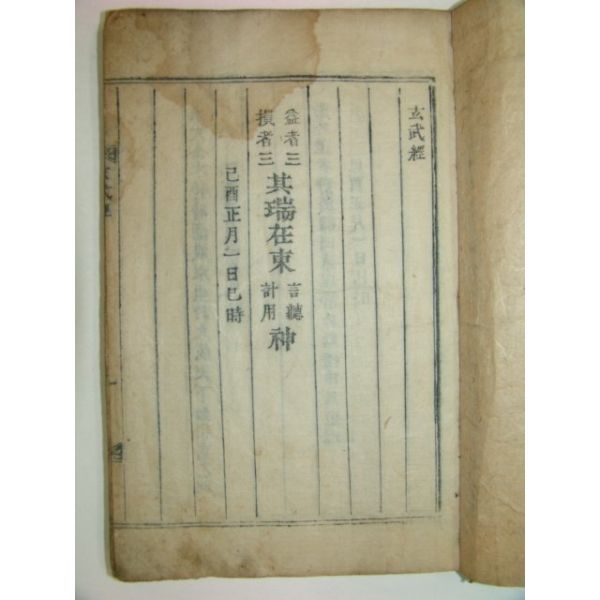 玄武經
益者三
損者三
其瑞在東
言聽
計用
神
己酉正月一日巳時